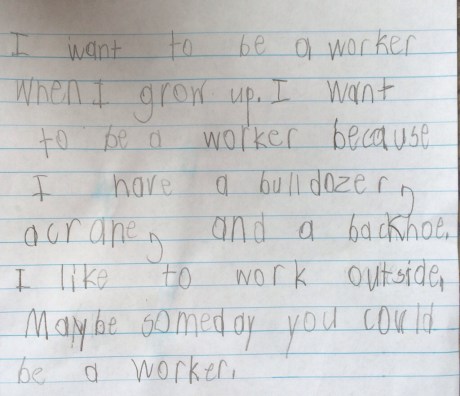 I want to be a worker
When I grow up. I want
to be a worker because
I have a bulldozer,
a crane, and a backhoe.
I like to work outside.
Maybe someday you could
be a worker.